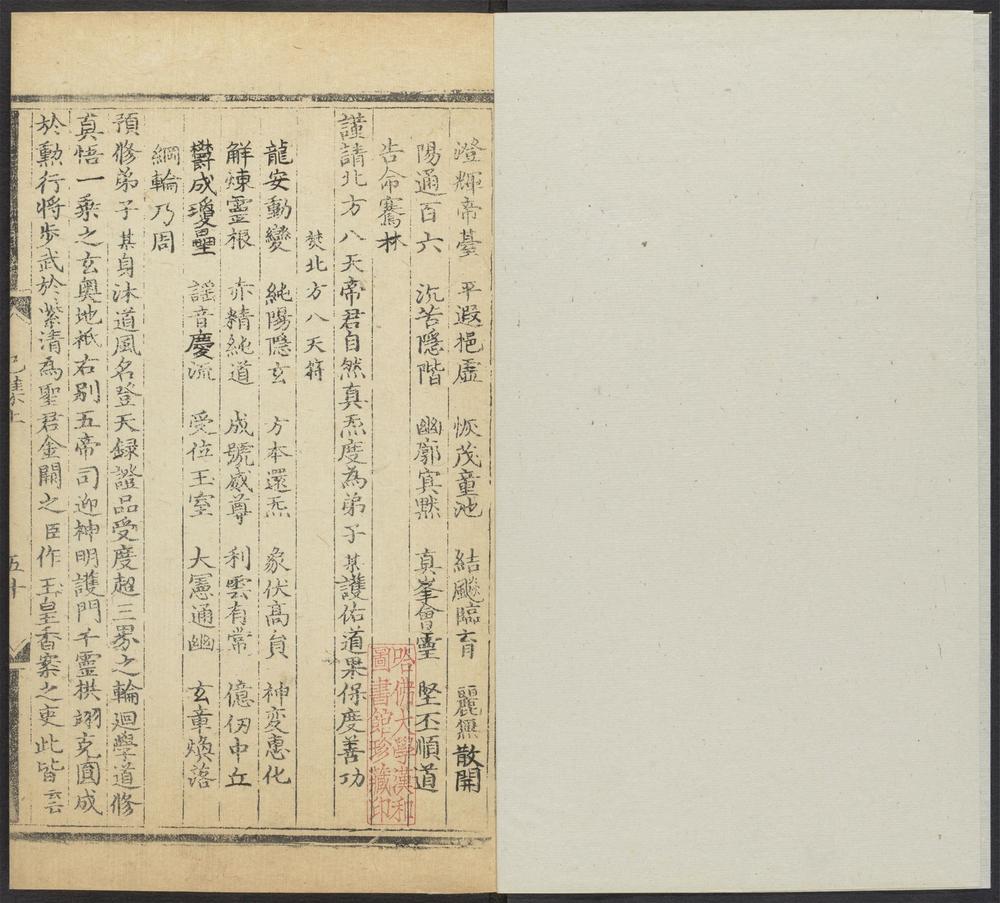 澄輝帝臺 平遐挹虛 恢茂童池 結飈臨育 麗無散開
陽通百六 沉苦隱階 幽廓㝠黙 真峯會靈 堅丕順道
告命騫林
謹請北方八天帝君自然真炁度為弟子某護佑道果保度善功
焚北方八天符
龍安動變 純陽隱玄 方本還炁 象伏高貟 神变惠化
解煉靈根 赤精純道 成號威尊 利雲有常 億仞中丘
欝成瓊壘 謡音慶流 受位玉室 大憲通幽 玄章煥落
綱輪乃周
預修弟子某身沐道風名登天録證品受度超三界之輪迴學道修
真悟一乘之玄奥地祇右别五帝司迎神明護門千靈拱翊克圓成
於勳行将步武於紫清為聖君金闕之臣作玉皇香案之吏此皆云云
五十
哈佛大學漢和
圖書館珍藏印